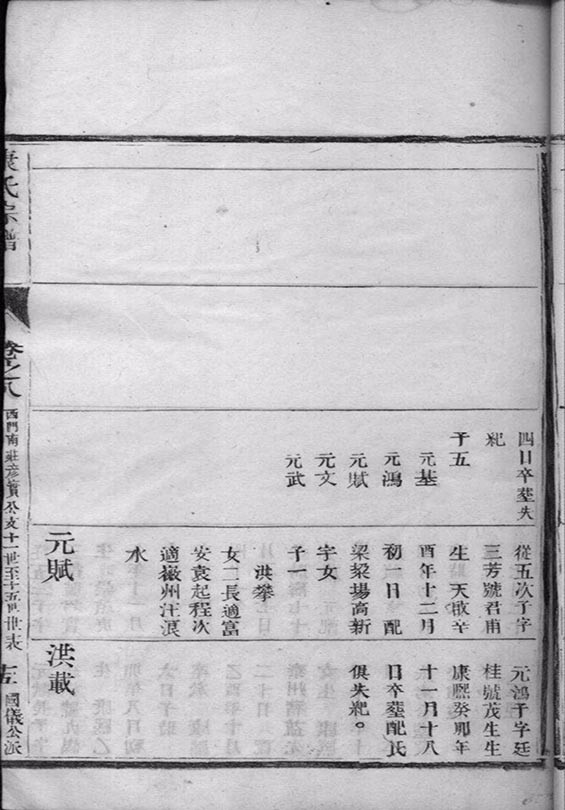 四日卒塟失
紀
子五
元基
元鴻
元賦
元文
元武
從五次子字
三芳號君甫
生 天啟辛
酉年十二月
初一日 配
梁梁場高新
字女
子一
洪攀
女二長適富
安袁起程次
適徽州汪浪
水
元賦
元鴻子字廷
桂號茂生生
康熙癸卯年
十一月十八
日卒塟配氏
俱失紀。
洪載
氏宗譜
卷之八
西門南莊彦賓公支十一世至十五世世表
國儀公派